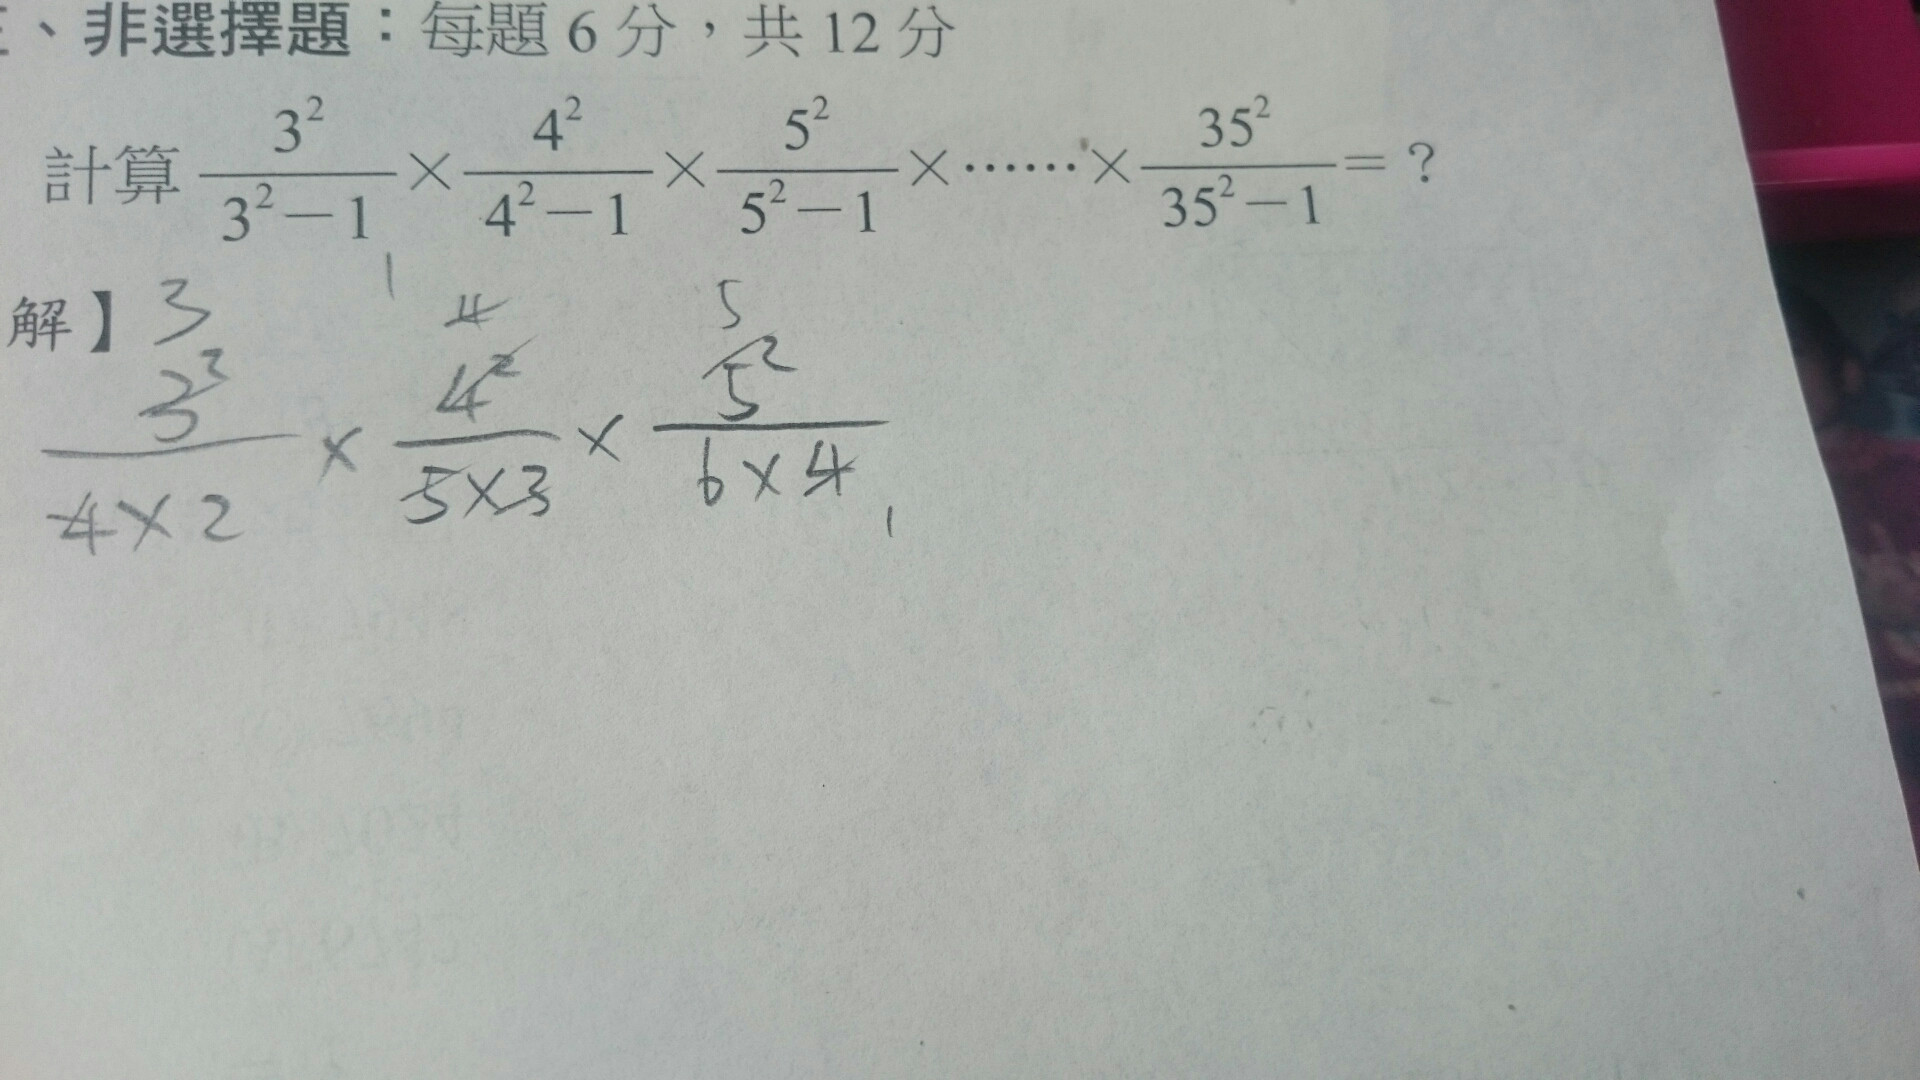 、非選擇題：每題 6 分，共 12 分
計算 3²/(3²－1) × 4²/(4²－1) × 5²/(5²－1) × …… × 35²/(35²－1) = ?
解】3 1 4 5
3²/(4×2) × 4²/(5×3) × 5²/(6×4) 1